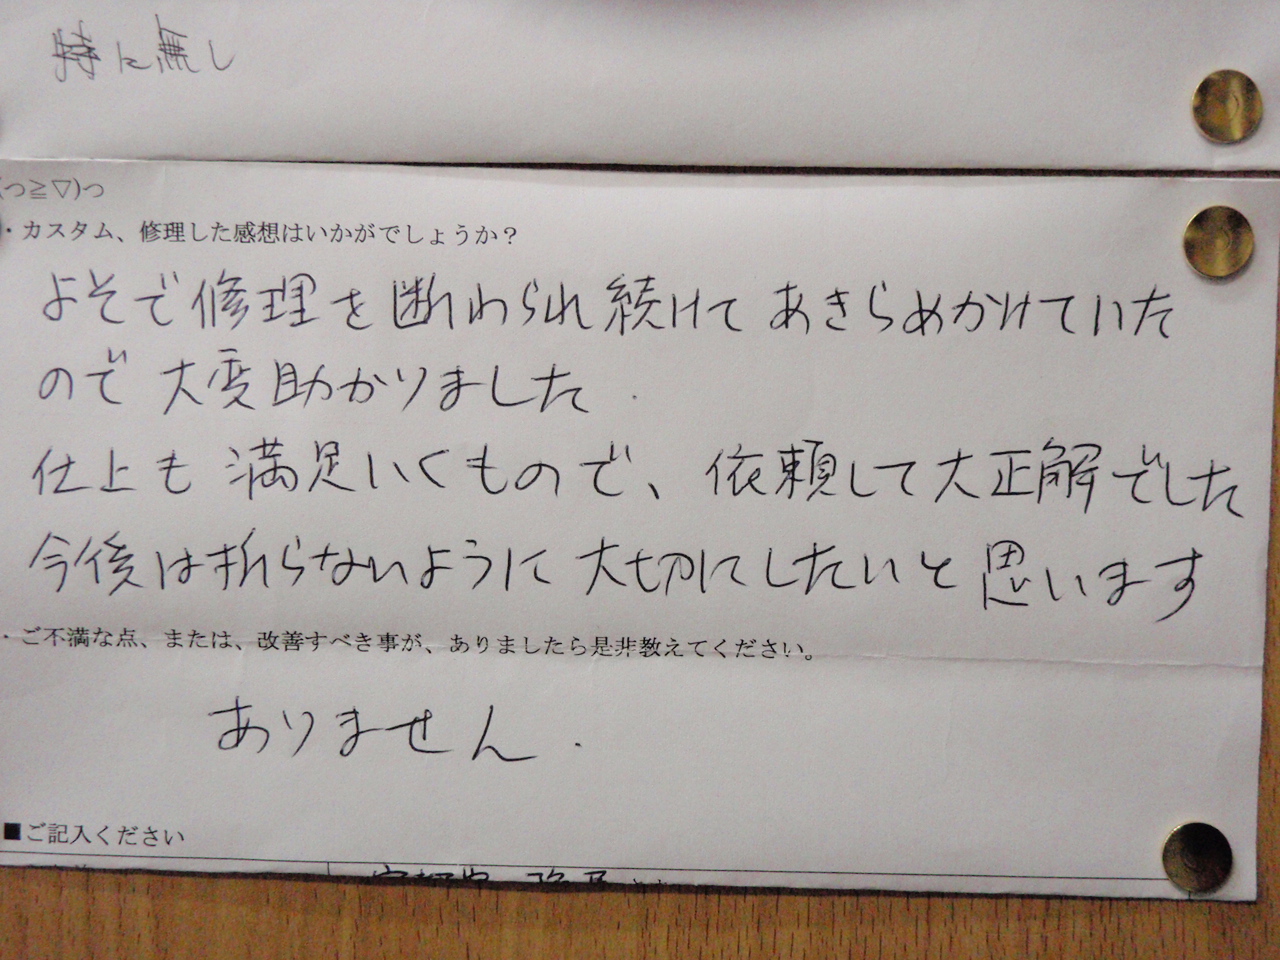 特に無し
(つ≧▽)つ
・カスタム、修理した感想はいかがでしょうか?
よそで修理を断わられ続けてあきらめかけていた
ので大変助かりました.
仕上も満足いくもので、依頼して大正解でした
今後は折らないように大切にしたいと思います
・ご不満な点、または、改善すべき事が、ありましたら是非教えてください。
ありません.
■ご記入ください